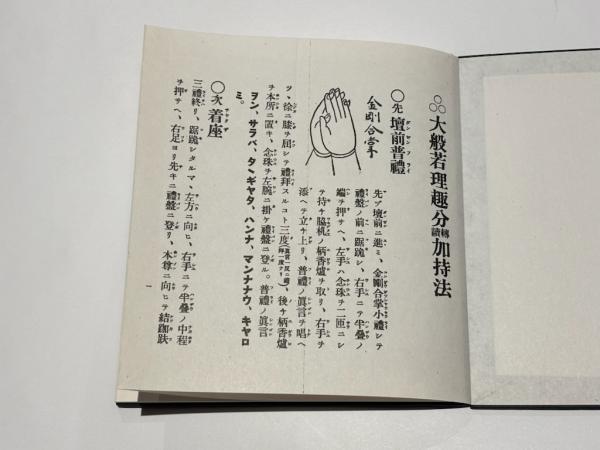 大般若理趣分轉讀加持法
○先壇前普禮
金剛合掌
先ヅ壇前ニ進ミ、金剛合掌小禮シテ
禮盤ノ前ニ踞跪シ、右手ニテ半疊ノ
端ヲ押サヘ、左手ハ念珠ヲ二匝ニシ
テ持チ脇机ノ柄香爐ヲ取リ、右手ヲ
添ヘテ立チ上リ、普禮ノ眞言ヲ唱ヘ
ツヽ、徐ニ膝ヲ屈シテ禮拜スルコト三度、後チ柄香爐
ヲ本所ニ置キ、念珠ヲ左腕ニ掛ケ禮盤ニ登ル。普禮ノ眞言
ヲン、サラバ、タヽギヤタ、ハンナ、マンナナウ、キヤロ
ミ。
○次着座
三禮終リ、踞跪シタルマヽ、左方ニ向ヒ、右手ニテ半疊ノ中程
ヲ押サヘ、右足ヨリ先キニ禮盤ニ登リ、本尊ニ向ヒテ結跏趺
一